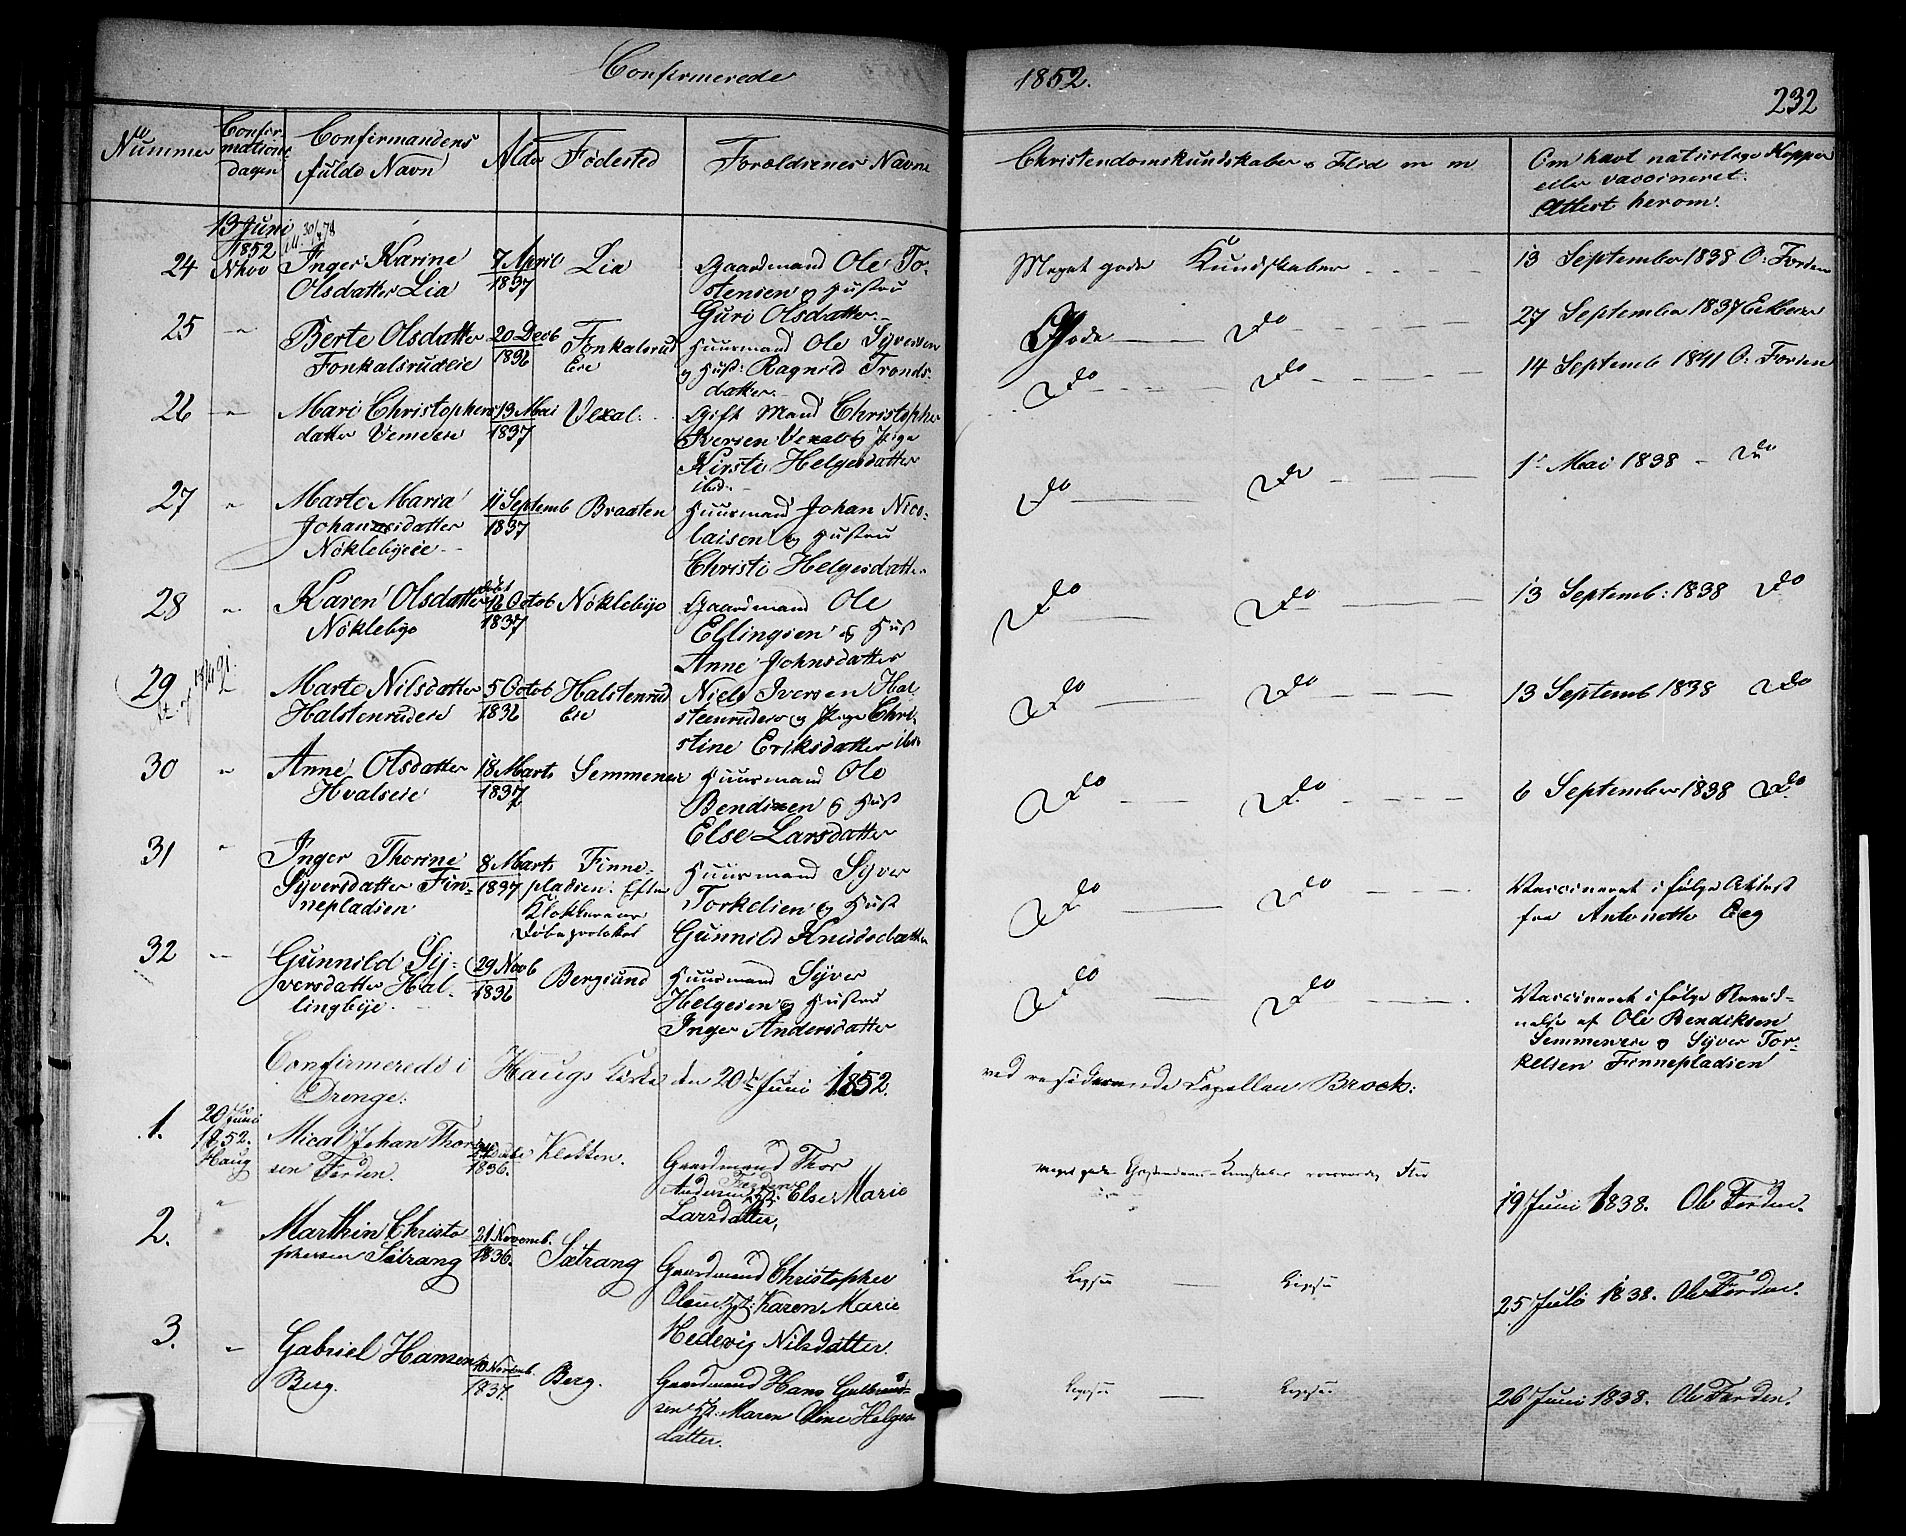 Confirmerede
1852.
232
Nummer
Confir-
mations
dagen
Confirmandens
fulde Navn
Alder
Fødested
Forældrenes Navne
Christendomskundskaber & Flid m m
Om havt naturlige Kopper
eller vaccineret.
Attest herom.
13 Juni
1852
24 Inger Karine
Olsdatter Lia
7 April
1837
Lia
Gaardmand Ole To-
stensen og Hustru
Guri Olsdatter.
Meget gode Kundskaber
13 September 1838 O: Forden
25 " Berte Olsdatter
Fonkalsrudeie
20 Decb
1836
Fonkalsrud
Eie
Huusmand Ole Syversen
og Hust: Ragnild Tronds-
datter.
Gode Do
27 September 1837
26 " Mari Christophers
datter Vemeeie
13 Mai
1837
Vexal.
Gift Mand Christopher
Iversen Vexal og Pige
Kirsti Helgesdatter
ibid.
Do Do
14 Septemb 1841 O: Forden
27 " Marte Maria
Johannsdatter
Nöklebyeie
11 Septemb
1837
Braaten
Huusmand Johan Nico-
laisen og Hustru
Christi Helgesdatter
Do Do
1st Mai 1838 - Do
28 " Karen Olsdatter
Nöklebye
16 Octob
1837
Nöklebye
Gaardmand Ole
Ellingsen og Hust
Anne Johnsdatter
Do Do
13 Septemb: 1838 Do
29 Marte Nilsdatter
Halstenrudeie
5 Octob
1836
Halstenrud
Eie
Niels Iversen Hal
steenrudeie og Pige Chri-
stine Eriksdatter ibid
Do Do
13 Septemb 1838 Do
30 " Anne Olsdatter
Hvalseie
18 Marts
1837
Semmeneie
Huusmand Ole
Bendixen og Hust
Else Larsdatter
Do Do
6 September 1838 Do
31 " Inger Thorine
Syversdatter Fin-
nepladsen
8 Marts
1837
Finne-
pladsen. Efter
Klokkerens
Døbeprotokol
Huusmand Syver
Torkelsen og Hust
Gunnild Knudsdatter
Do Do
Vaccineret i følge Attest
fra Antonette Eeg
32 " Gunnild Sy-
versdatter Hal-
lingbye.
29 Novb
1836
Bergsund
Huusmand Syver
Helgesen og Hustru
Inger Andersdatter
Do Do
Vaccineret i følge Kund-
nelse af Ole Bendiksen
Semmeneie og Syver Tor-
kelsen Finnepladsen
Confirmerede i Haugs Kirke den 20de Juni 1852. ved residerende Capellan Brock:
Drenge:
1. 20 Juni
1852.
Haug
Mical Johan Thor
sen Forden.
1836.
Klekken.
Gaardmand Thor
Andersen Forden
Hst: Else Marie
Larsdatter,
19 Juni 1838. Ole Forden.
2. " Marthin Christo
phersen Sætrang
21 Novemb.
1836.
Sætrang
Gaardmand Christopher
Olsen Hst: Karen Marie
Hedevig Nilsdatter.
Ligesaa — Ligesaa
25 Juli 1838. Ole Forden.
3. " Gabriel Hansen
Berg.
10 Novemb.
1837.
Berg.
Gaardmand Hans Gulbrand-
sen Hst: Maren Oline Helges-
datter.
Ligesaa — Ligesaa
26 Juni 1838. Ole Forden.